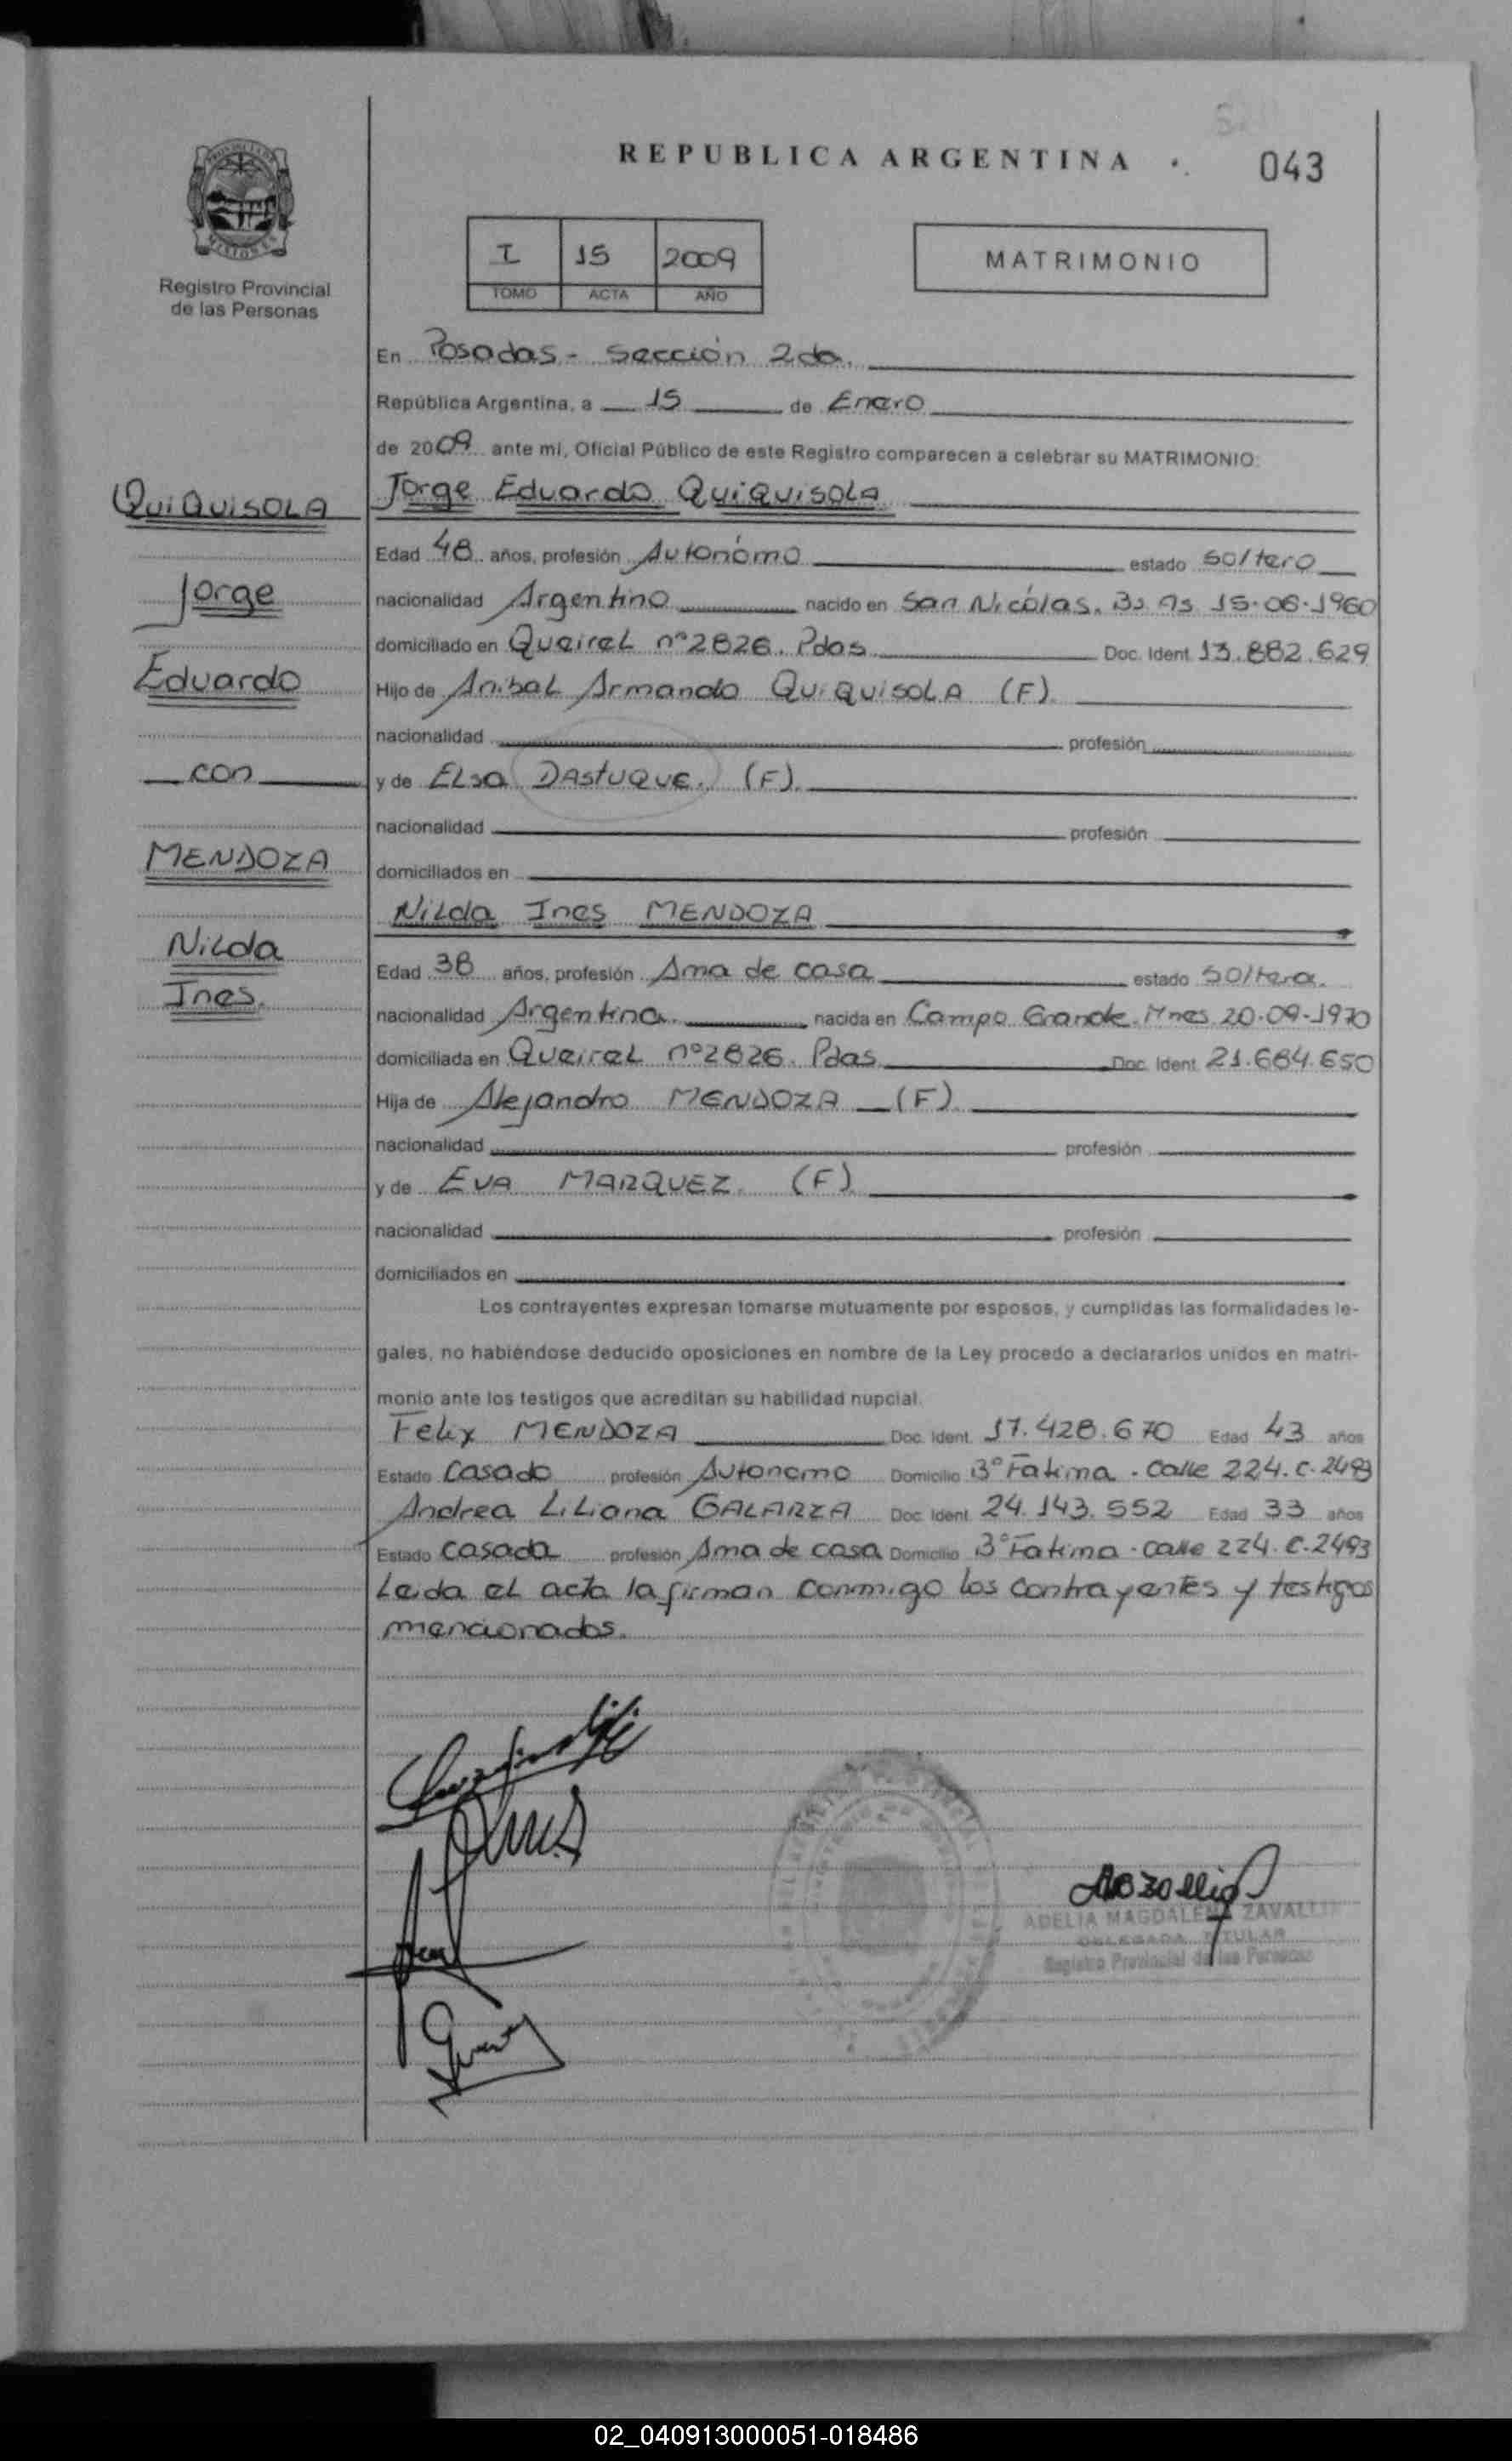 REPUBLICA ARGENTINA
043
PROVINCIA DE
MISIONES
Registro Provincial
de las Personas
I 15 2009
TOMO ACTA AÑO
MATRIMONIO
En Posadas - Sección 2da.
República Argentina, a 15 de Enero
de 2009 ante mi, Oficial Público de este Registro comparecen a celebrar su MATRIMONIO:
QuiQuisOLA
Jorge
Eduardo
con
MENDOZA
Nilda
Ines.
Jorge Eduardo QuiQuisOLA
Edad 48 años, profesión Autonómo estado soltero
nacionalidad Argentino nacido en San Nicólas. Bs As 15-06-1960
domiciliado en Queirel nº2826. Pdas Doc. Ident. 13.882.629
Hijo de Anibal Armando QuiQuisOLA (F).
nacionalidad profesión
y de Elsa DAStUQUE. (F).
nacionalidad profesión
domiciliados en
Nilda Ines MENDOZA
Edad 38 años, profesión Ama de casa estado soltera.
nacionalidad Argentina. nacida en Campo Grande. Mnes 20-09-1970
domiciliada en Queirel nº2826. Pdas Doc. Ident. 21.684.650
Hija de Alejandro MENDOZA (F).
nacionalidad profesión
y de EVA MARQUEZ. (F)
nacionalidad profesión
domiciliados en
Los contrayentes expresan tomarse mutuamente por esposos, y cumplidas las formalidades le-
gales, no habiéndose deducido oposiciones en nombre de la Ley procedo a declararlos unidos en matri-
monio ante los testigos que acreditan su habilidad nupcial.
Felix MENDOZA Doc. Ident. 17.428.670 Edad 43 años
Estado Casado profesión Autonomo Domicilio Bº Fatima - Calle 224. C. 2493
Andrea Liliana GALARZA Doc. Ident. 24.143.552 Edad 33 años
Estado casada profesión Ama de casa Domicilio Bº Fatima - calle 224. C-2493
Leida el acta la firman conmigo los contrayentes y testigos
mencionados.
ADELIA MAGDALENA ZAVALL
DELEGADA TITULAR
Registro Provincial de las Personas
02_040913000051-018486